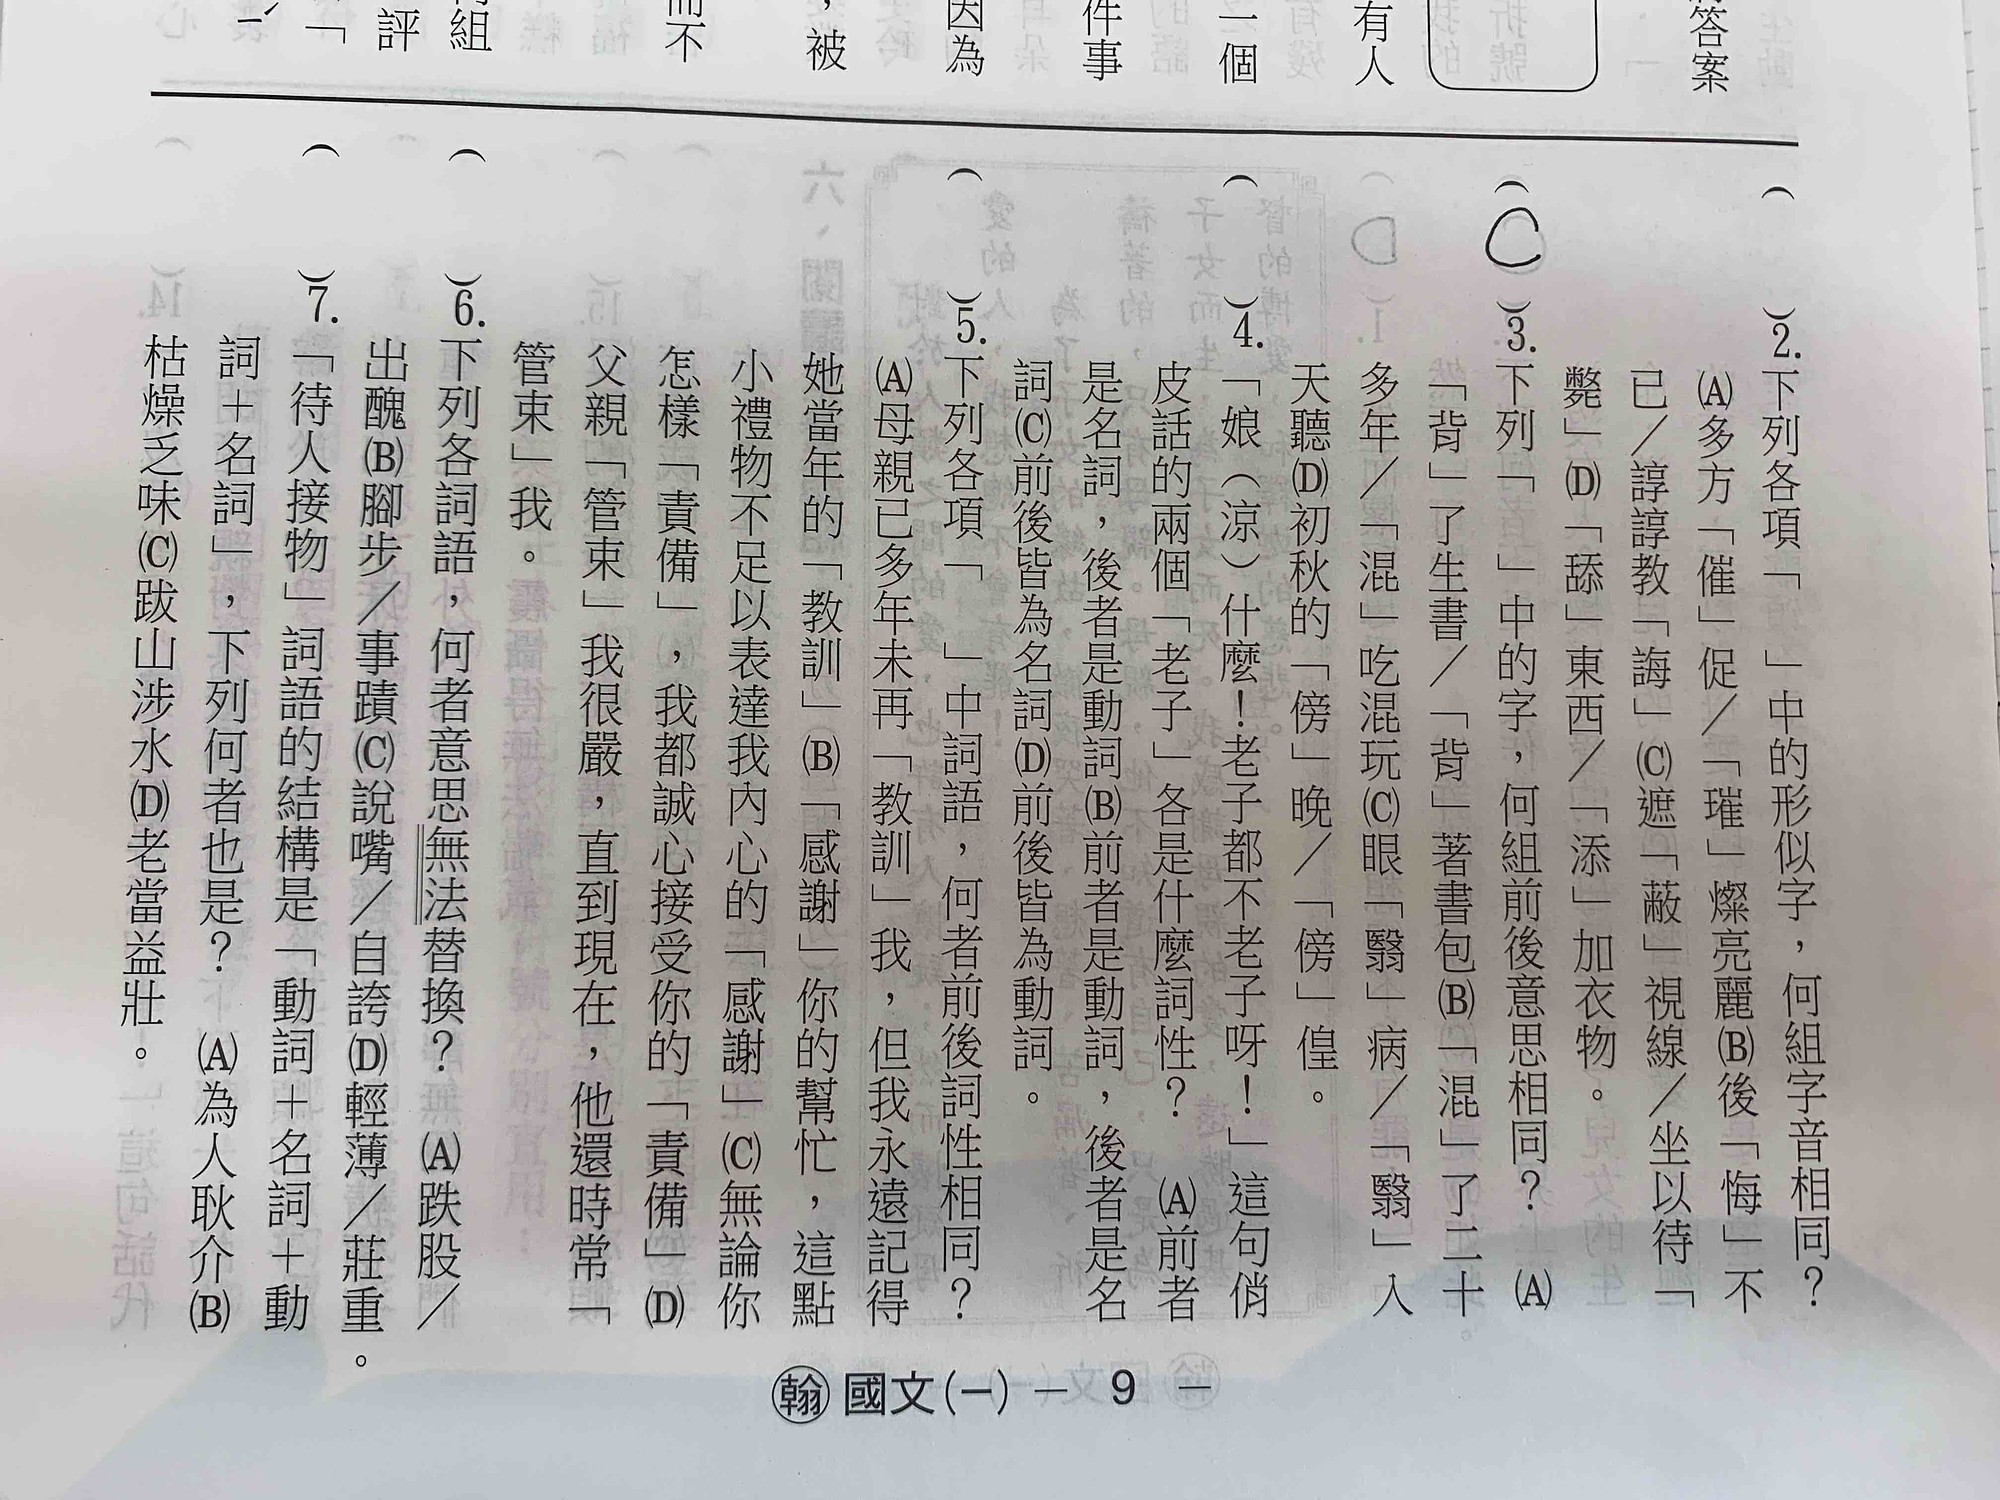 答案
有人
一個
件事
因為
，被
而不
組
評
「
（　）2.下列各項「　」中的形似字，何組字音相同？
(A)多方「催」促／「璀」燦亮麗(B)後「悔」不
已／諄諄教「誨」(C)遮「蔽」視線／坐以待「
斃」(D)「舔」東西／「添」加衣物。
（C）3.下列「　」中的字，何組前後意思相同？　(A)
「背」了生書／「背」著書包(B)「混」了二十
多年／「混」吃混玩(C)眼「翳」病／「翳」入
天聽(D)初秋的「傍」晚／「傍」偟。
（　）4.「娘（涼）什麼！老子都不老子呀！」這句俏
皮話的兩個「老子」各是什麼詞性？　(A)前者
是名詞，後者是動詞(B)前者是動詞，後者是名
詞(C)前後皆為名詞(D)前後皆為動詞。
（　）5.下列各項「　」中詞語，何者前後詞性相同？
(A)母親已多年未再「教訓」我，但我永遠記得
她當年的「教訓」(B)「感謝」你的幫忙，這點
小禮物不足以表達我內心的「感謝」(C)無論你
怎樣「責備」，我都誠心接受你的「責備」(D)
父親「管束」我很嚴，直到現在，他還時常「
管束」我。
（　）6.下列各詞語，何者意思無法替換？　(A)跌股／
出醜(B)腳步／事蹟(C)說嘴／自誇(D)輕薄／莊重。
（　）7.「待人接物」詞語的結構是「動詞＋名詞＋動
詞＋名詞」，下列何者也是？　(A)為人耿介(B)
枯燥乏味(C)跋山涉水(D)老當益壯。
翰 國文(一) － 9 －